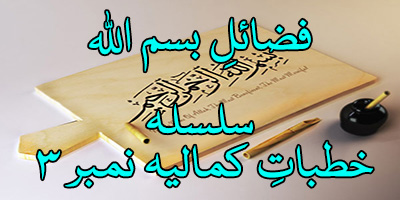 فضائلِ بسم اللہ
بسم الله الرحمن الرحيم
سلسلہ
خطباتِ کمالیہ نمبر ۳